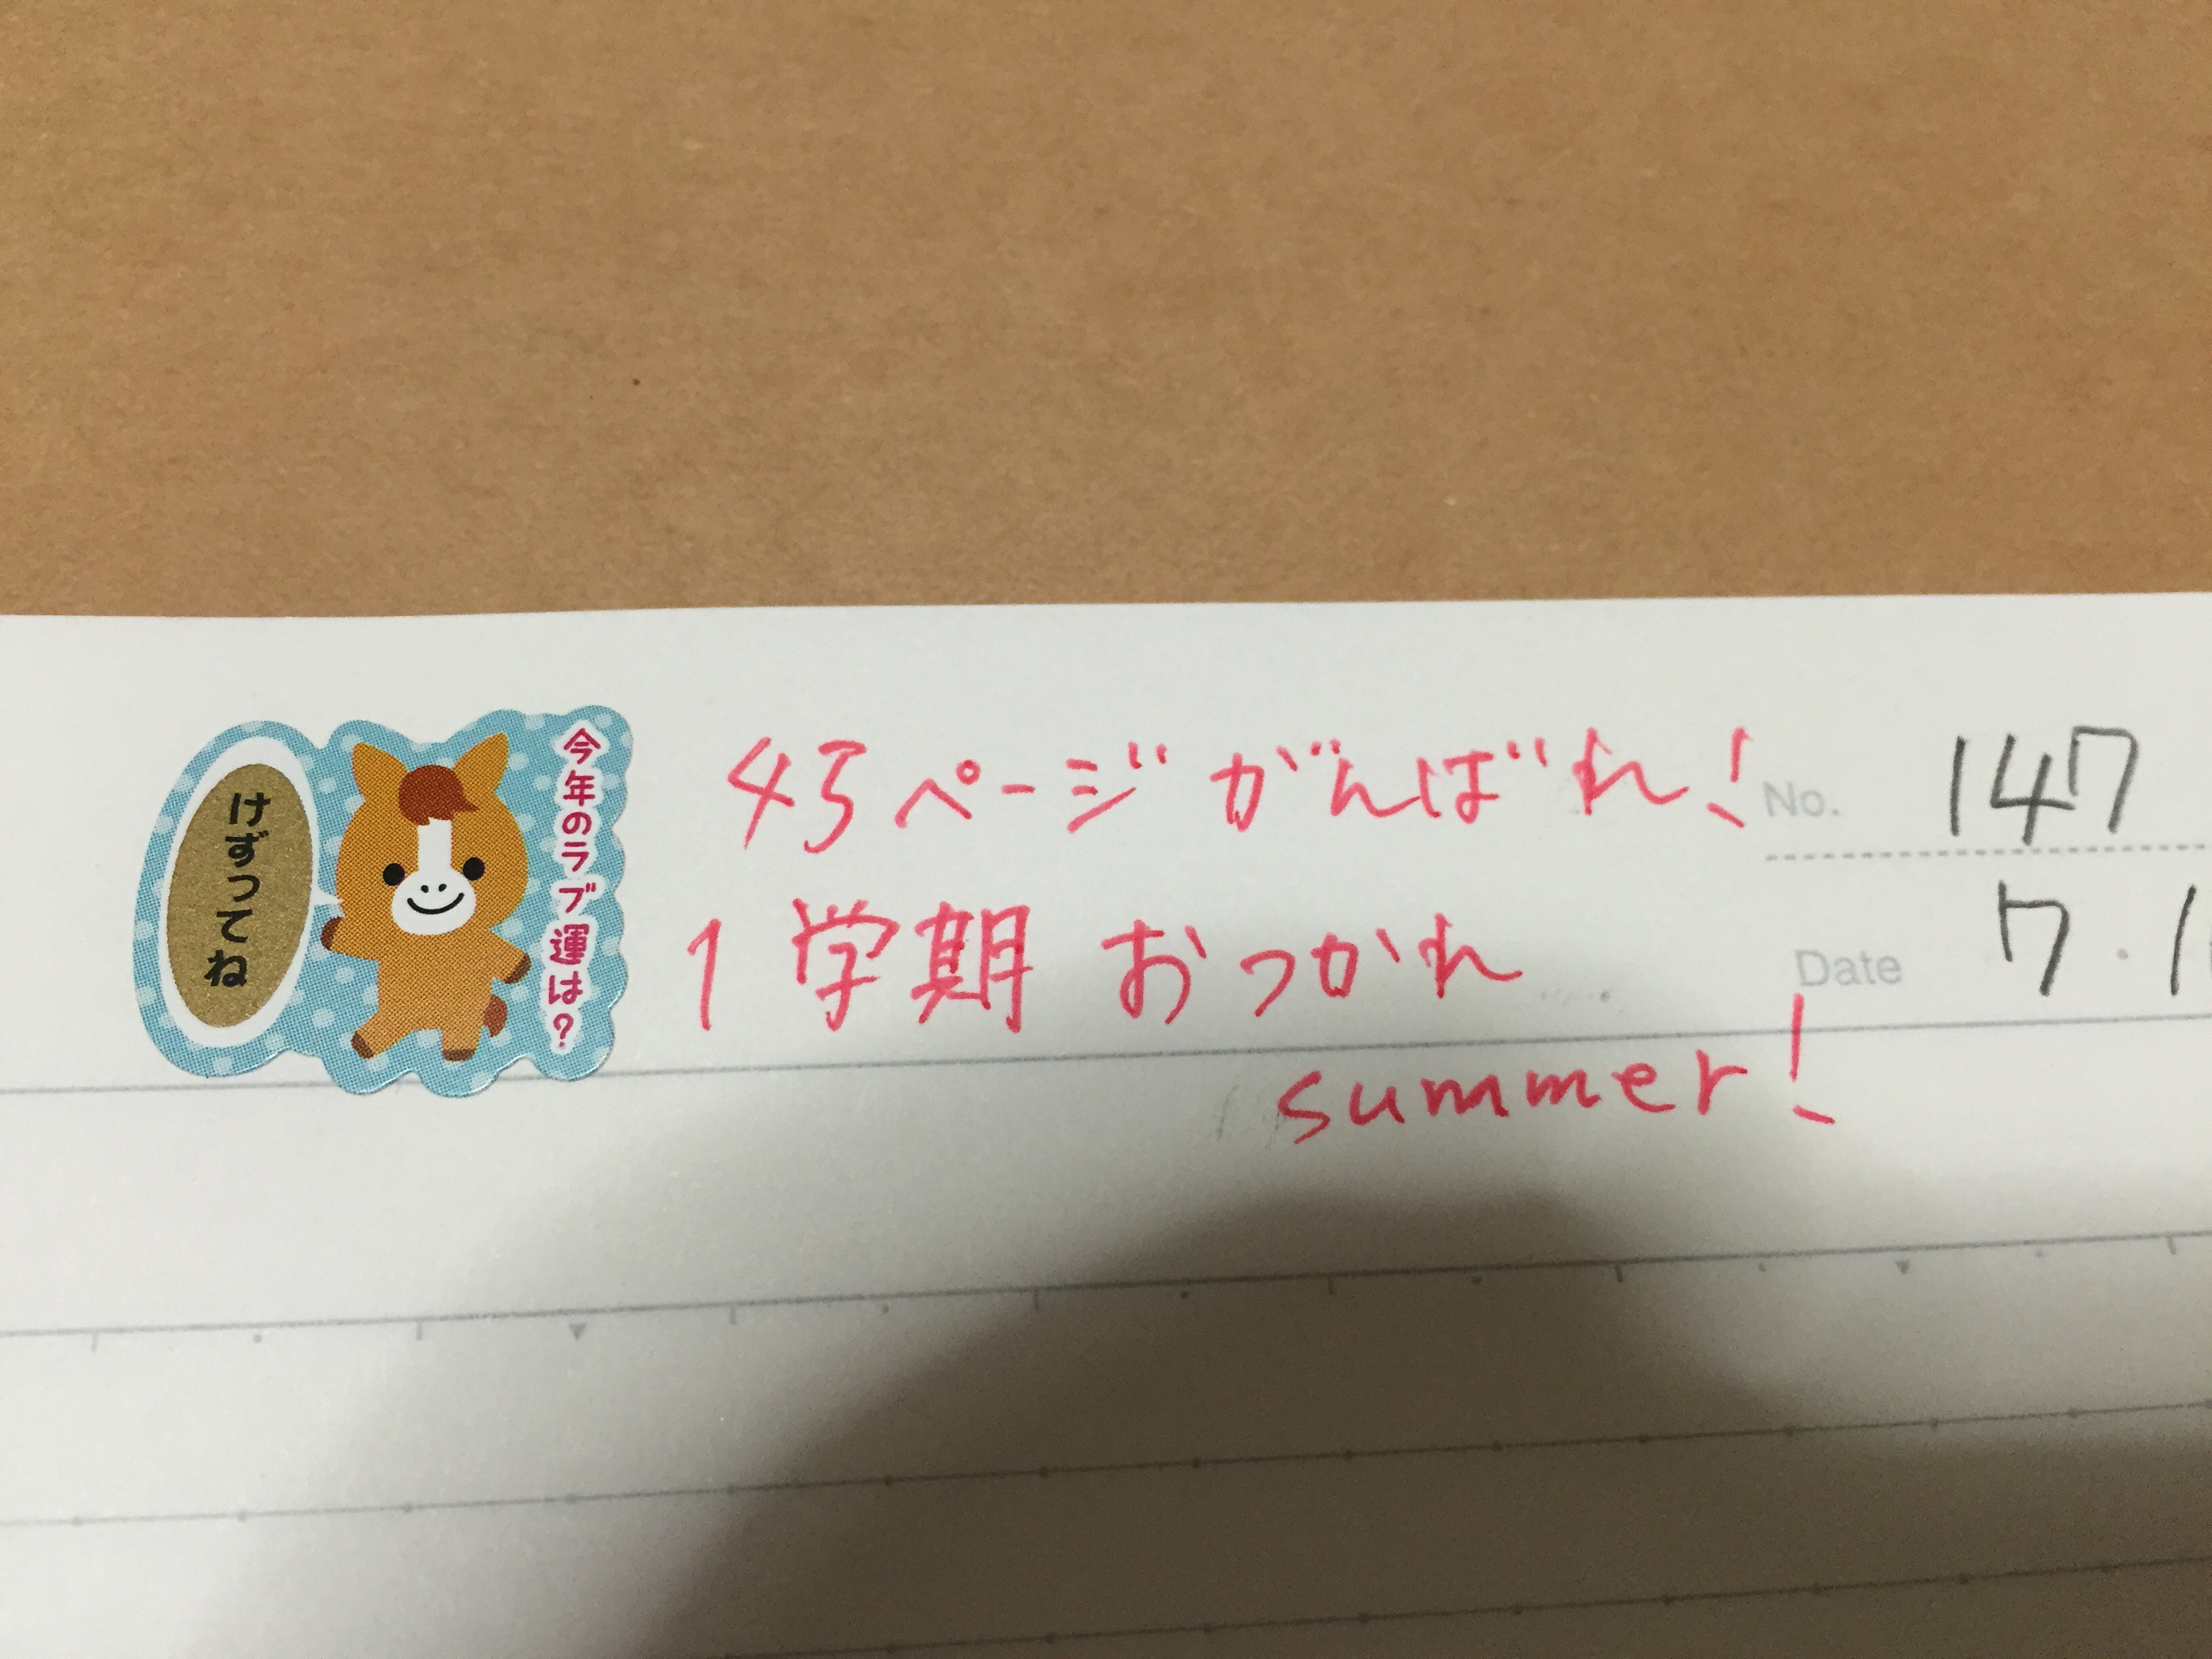 けずってね
今年のラブ運は?
45ページがんばれ!
1学期おつかれ
summer!
No. 147
Date 7.1